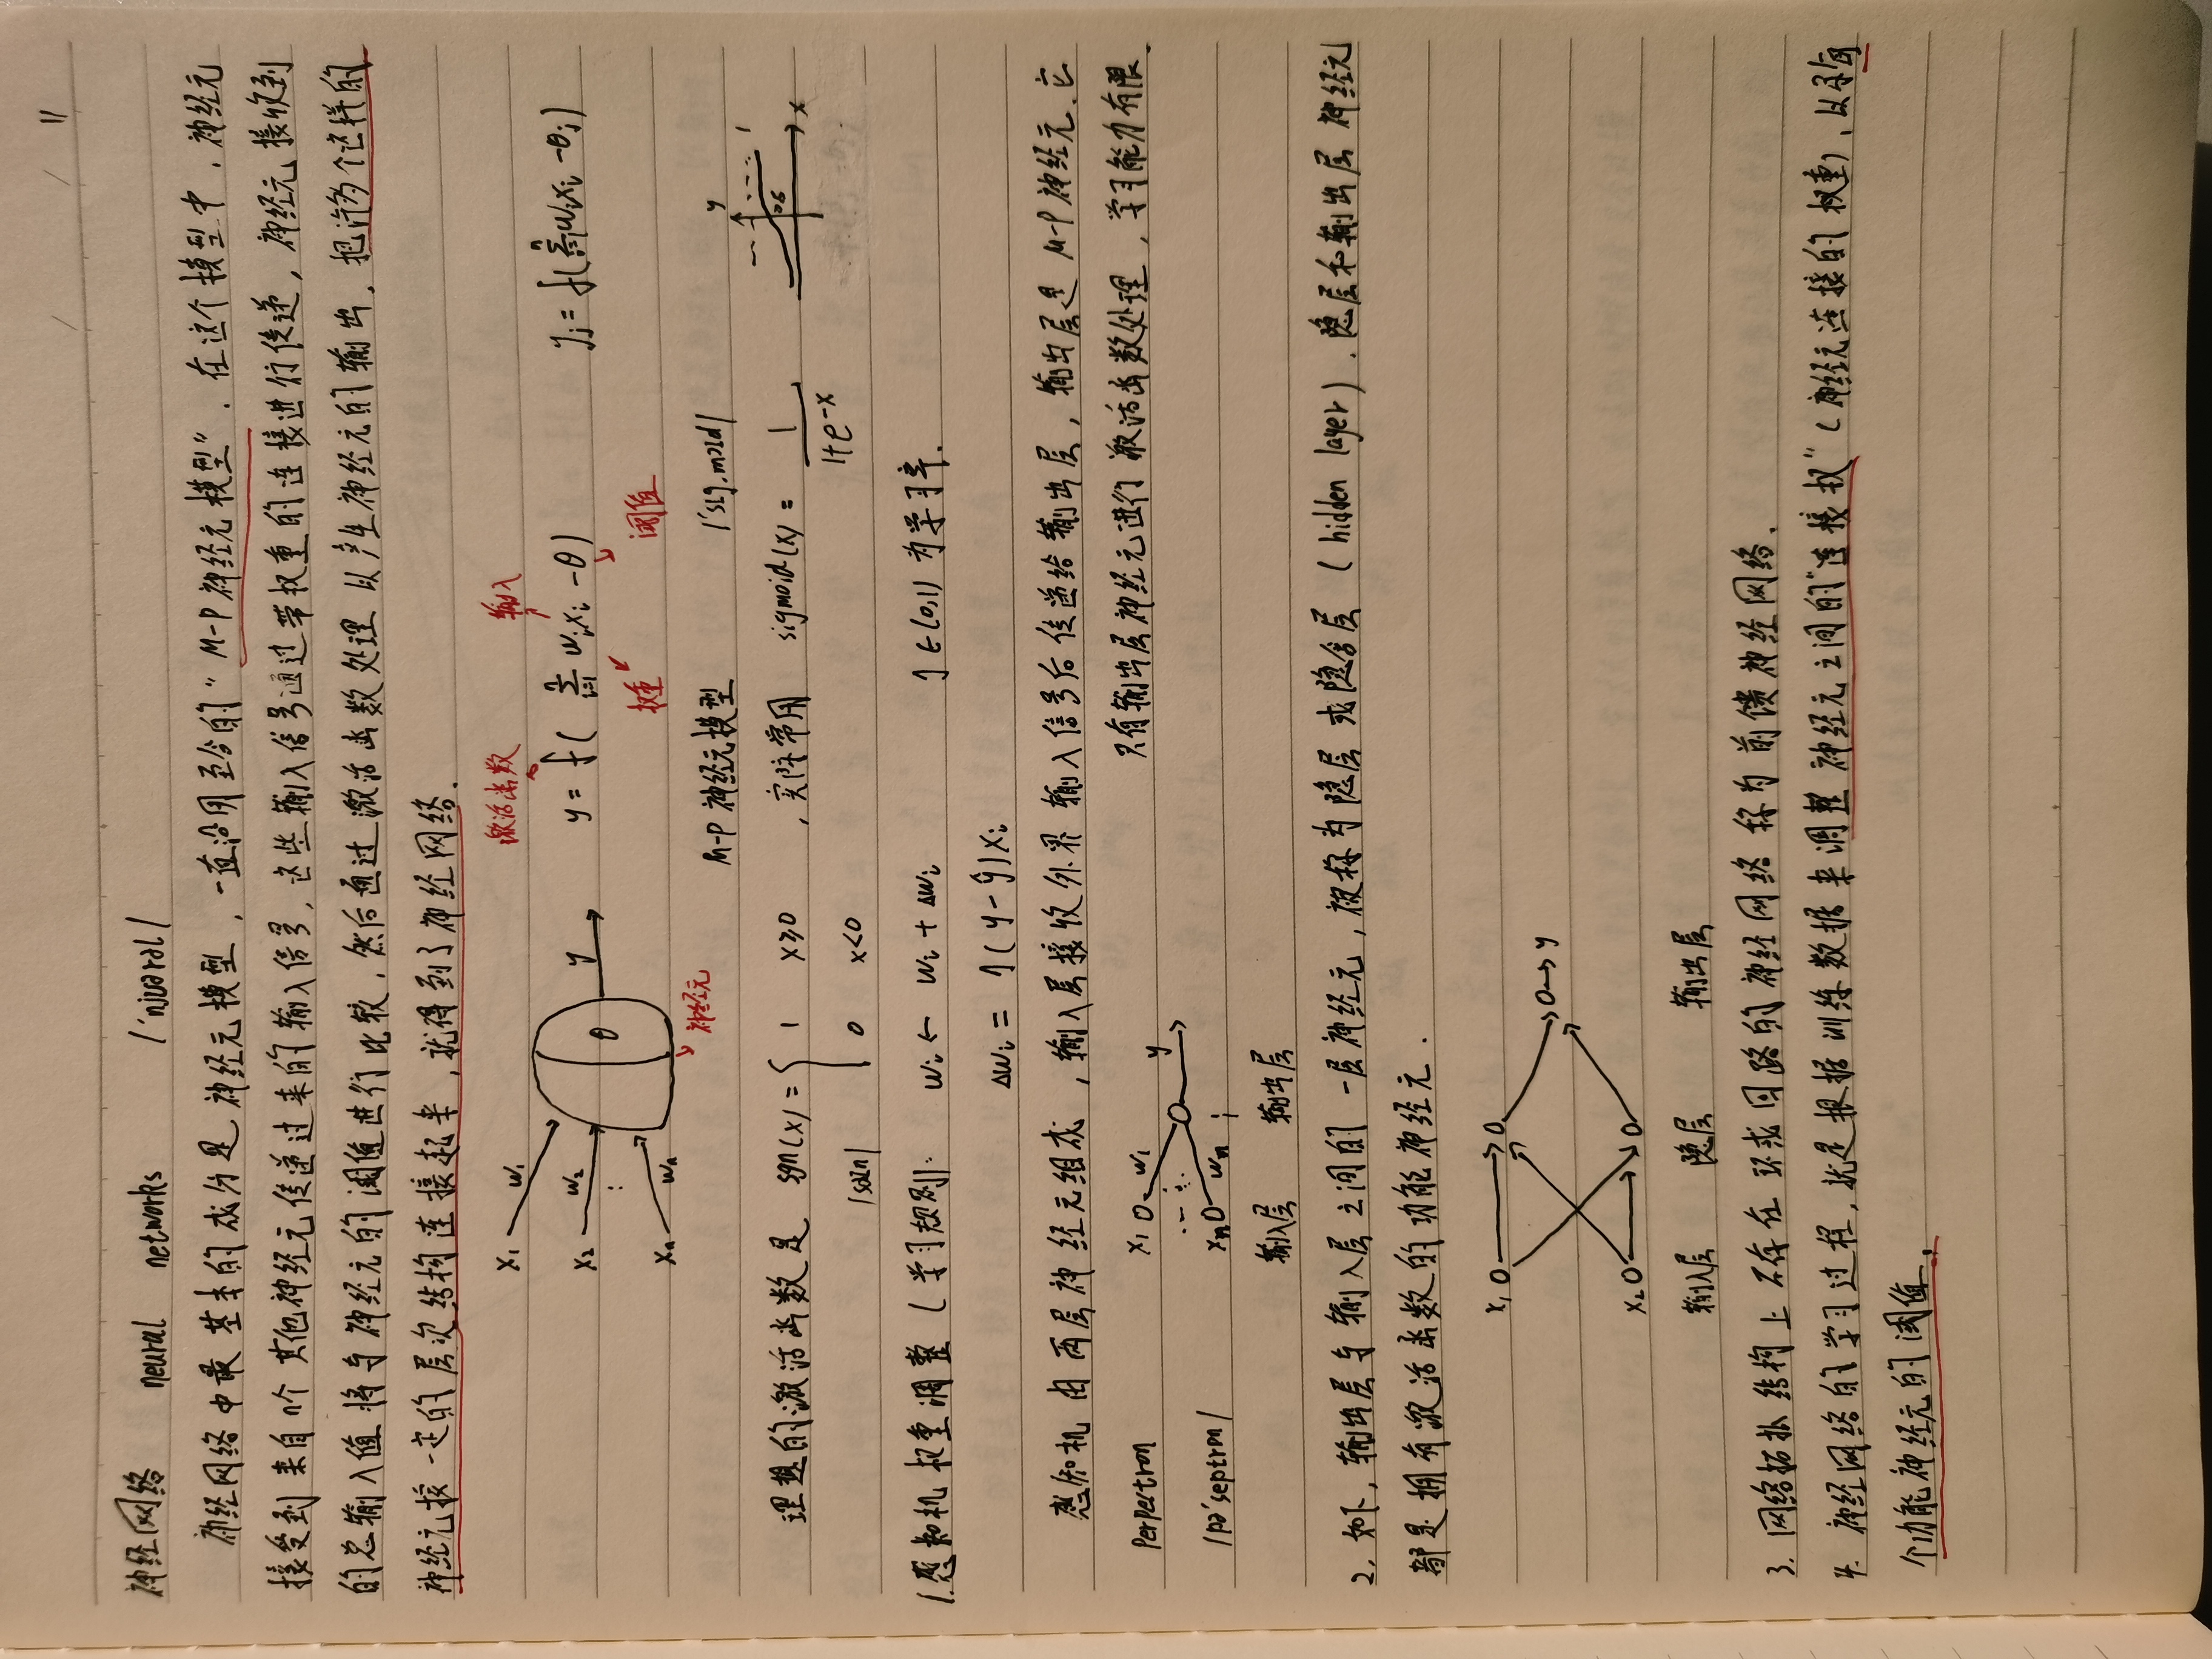 11
神经网络 neural networks /'njʊərəl/
神经网络中最基本的成分是神经元模型，一直沿用至今的“M-P神经元模型”. 在这个模型中，神经元
接受到来自n个其他神经元传递过来的输入信号，这些输入信号通过带权重的连接进行传递，神经元接收到
的总输入值将与神经元的阈值进行比较，然后通过激活函数处理以产生神经元的输出. 把许多个这样的
神经元按一定的层次结构连接起来，就得到了神经网络.
激活函数 输入
x₁ w₁
x₂ w₂ θ y y = f( Σⁿᵢ₌₁ wᵢxᵢ - θ) yⱼ = f(Σⁿᵢ₌₁ wᵢxᵢ - θⱼ)
⋮ 权重 阈值
xₙ wₙ
神经元 M-P神经元模型 /'sɪgmɔɪd/
理想的激活函数是 sgn(x) = { 1 x≥0 ，实际常用 sigmoid(x) = 1/(1+e^-x) y 1 0.5 x
/saɪn/ 0 x<0
1. 感知机权重调整(学习规则): wᵢ ← wᵢ + Δwᵢ η∈(0,1) 为学习率.
Δwᵢ = η(y - ŷ)xᵢ
感知机由两层神经元组成，输入层接收外界输入信号后传递给输出层，输出层是M-P神经元. 它
Perpectron x₁ w₁ y 只有输出层神经元进行激活函数处理，学习能力有限.
/pə'septrən/ xₙ wₙ
输入层 输出层
2. 如下，输出层与输入层之间的一层神经元，被称为隐层或隐含层(hidden layer). 隐层和输出层神经元
都是拥有激活函数的功能神经元.
x₁ y
x₂
输入层 隐层 输出层
3. 网络拓扑结构上不存在环或回路的神经网络称为前馈神经网络.
4. 神经网络的学习过程，就是根据训练数据来调整神经元之间的“连接权”(神经元连接的权重)，以及每
个功能神经元的阈值.